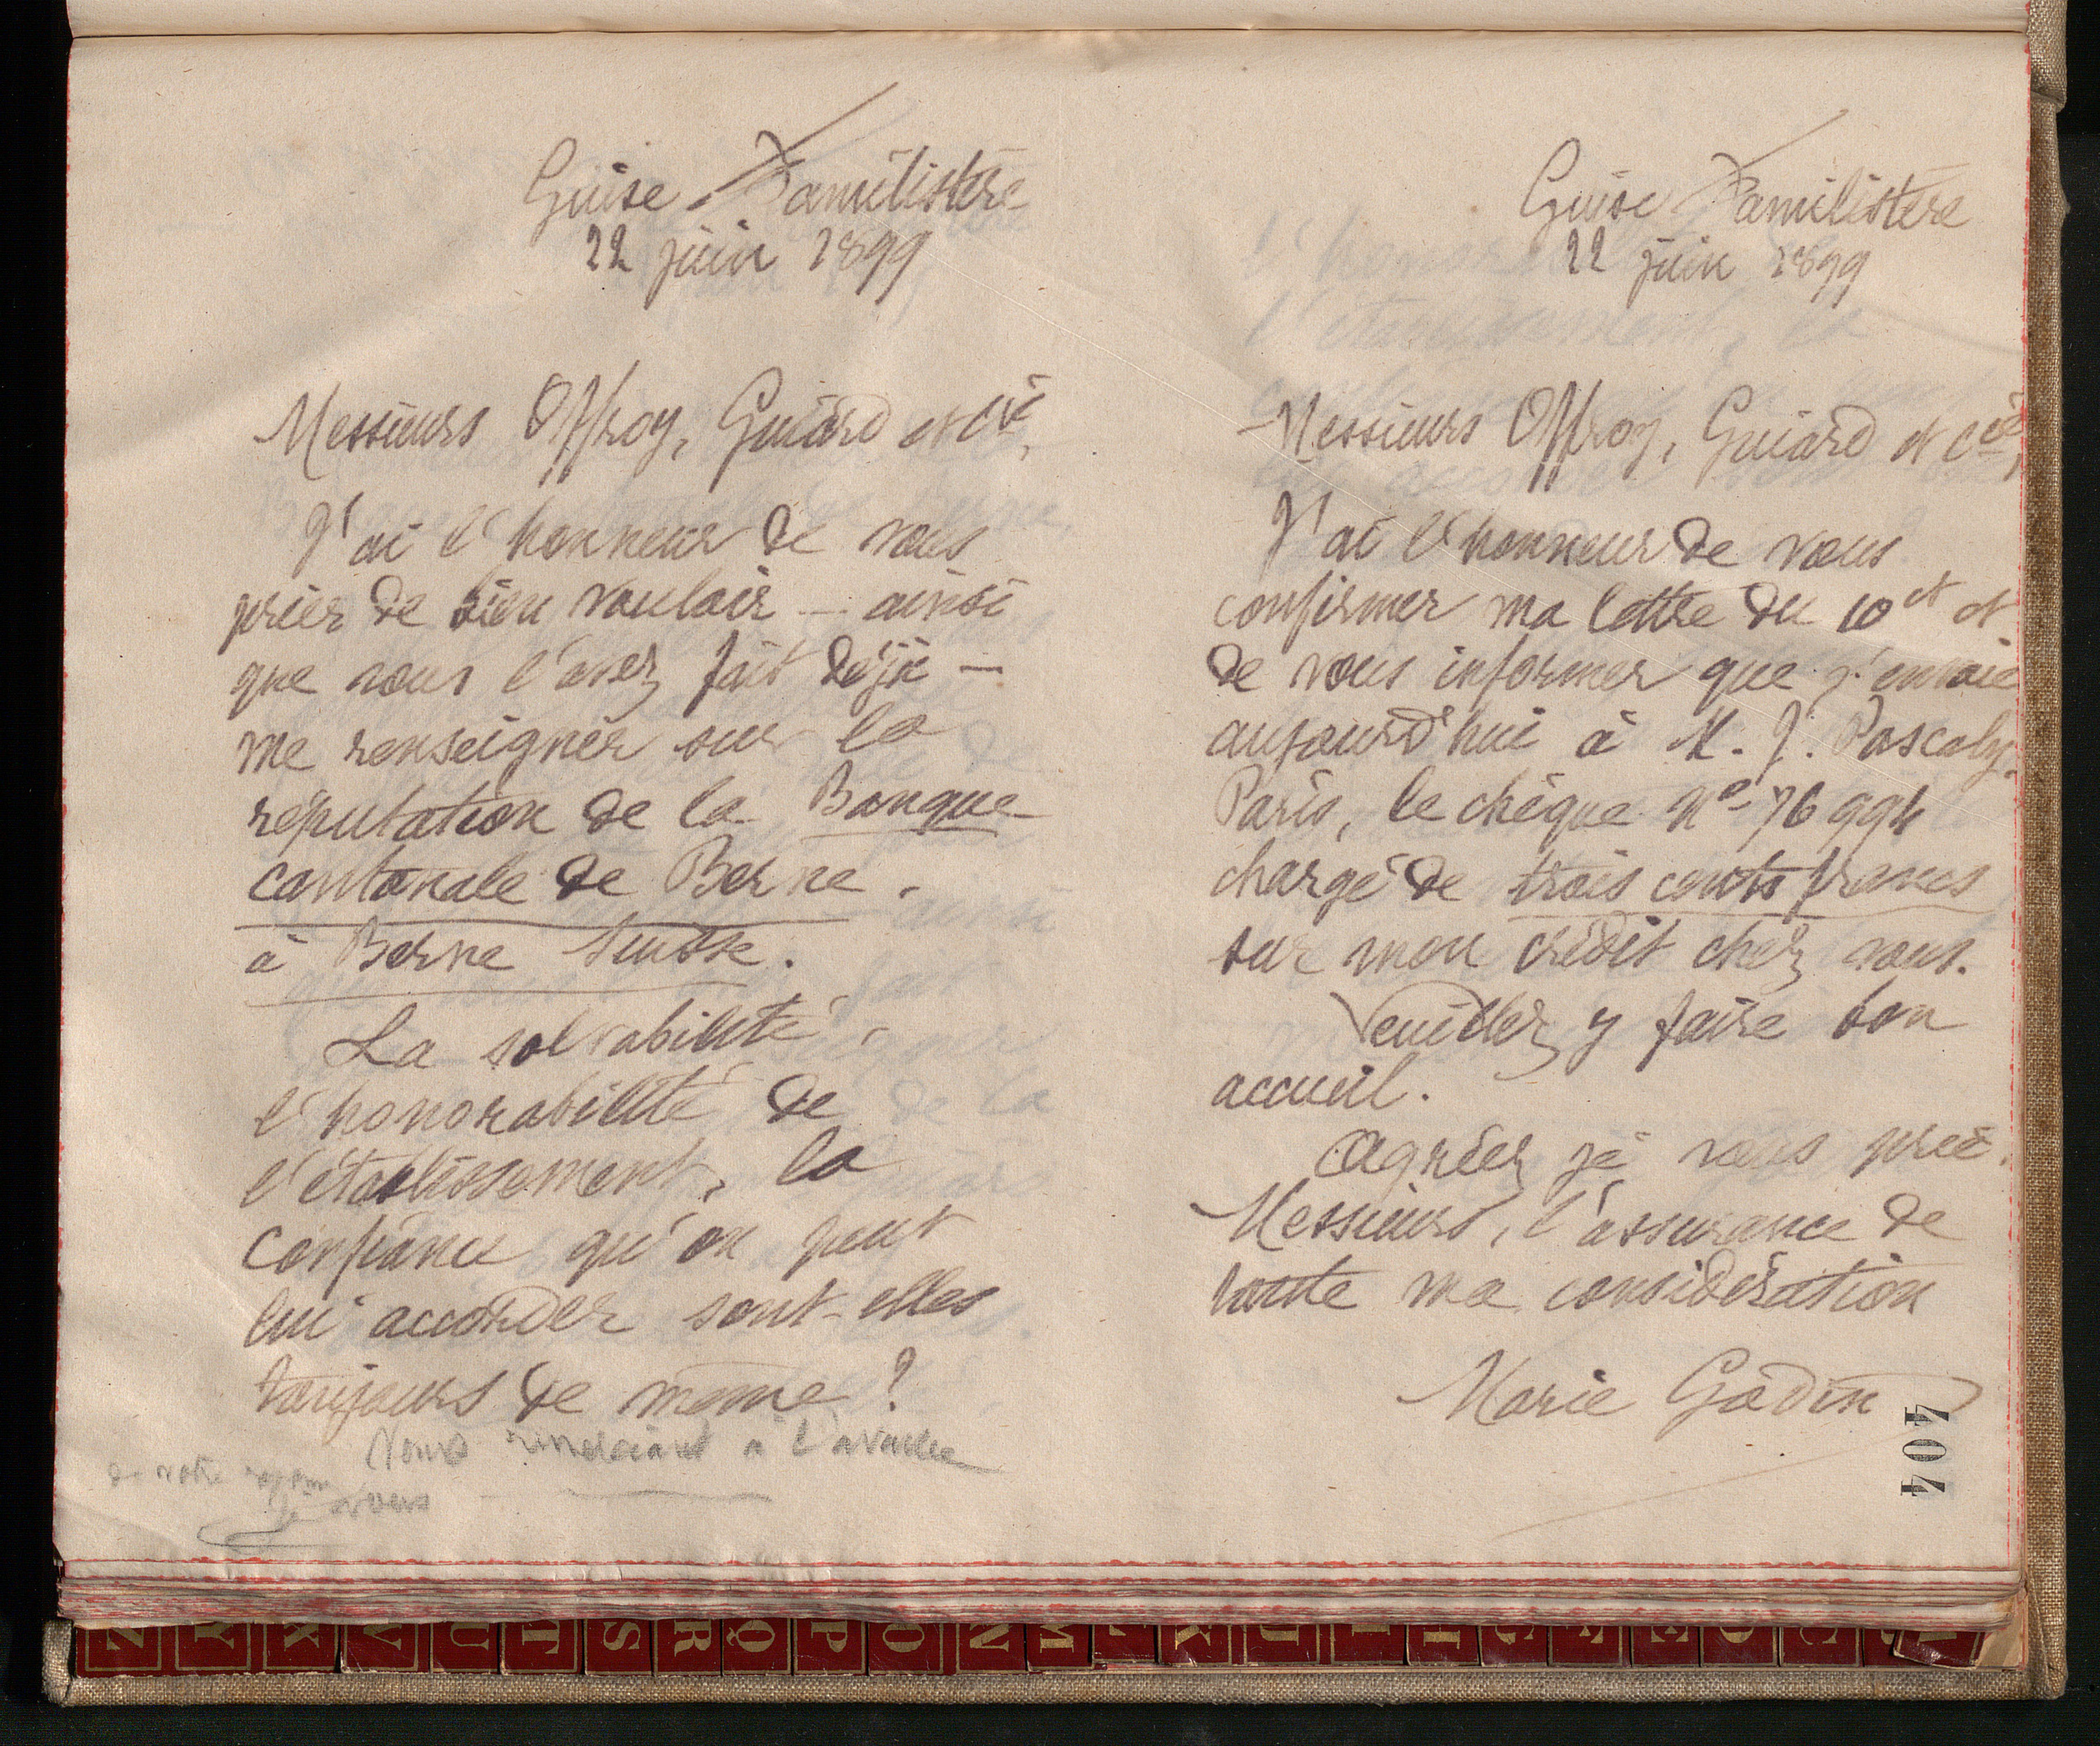 Guise Familistère
22 juin 1899
Messieurs Offroy, Guiard et Cie,
J'ai l'honneur de vous
prier de bien vouloir – ainsi
que vous l'avez fait déjà –
me renseigner sur la
réputation de la Banque
cantonale de Berne.
à Berne Suisse.
La solvabilité,
l'honorabilité de
l'établissement, la
confiance qu'on peut
lui accorder sont-elles
toujours de même ?
Vous remerciant à l'avance
de votre
je vous
Guise Familistère
22 juin 1899
Messieurs Offroy, Guiard et Cie,
J'ai l'honneur de vous
confirmer ma lettre du 10 ct et
de vous informer que j'envoie
aujourd'hui à M. J. Pascaly,
Paris, le chèque No 76 994
chargé de trois cents francs
sur mon crédit chez vous.
Veuillez y faire bon
accueil.
Agréez je vous prie,
Messieurs, l'assurance de
toute ma considération
Marie Godin
404
Z Y X V U T S R Q P O N M L K J I H G F E D C B